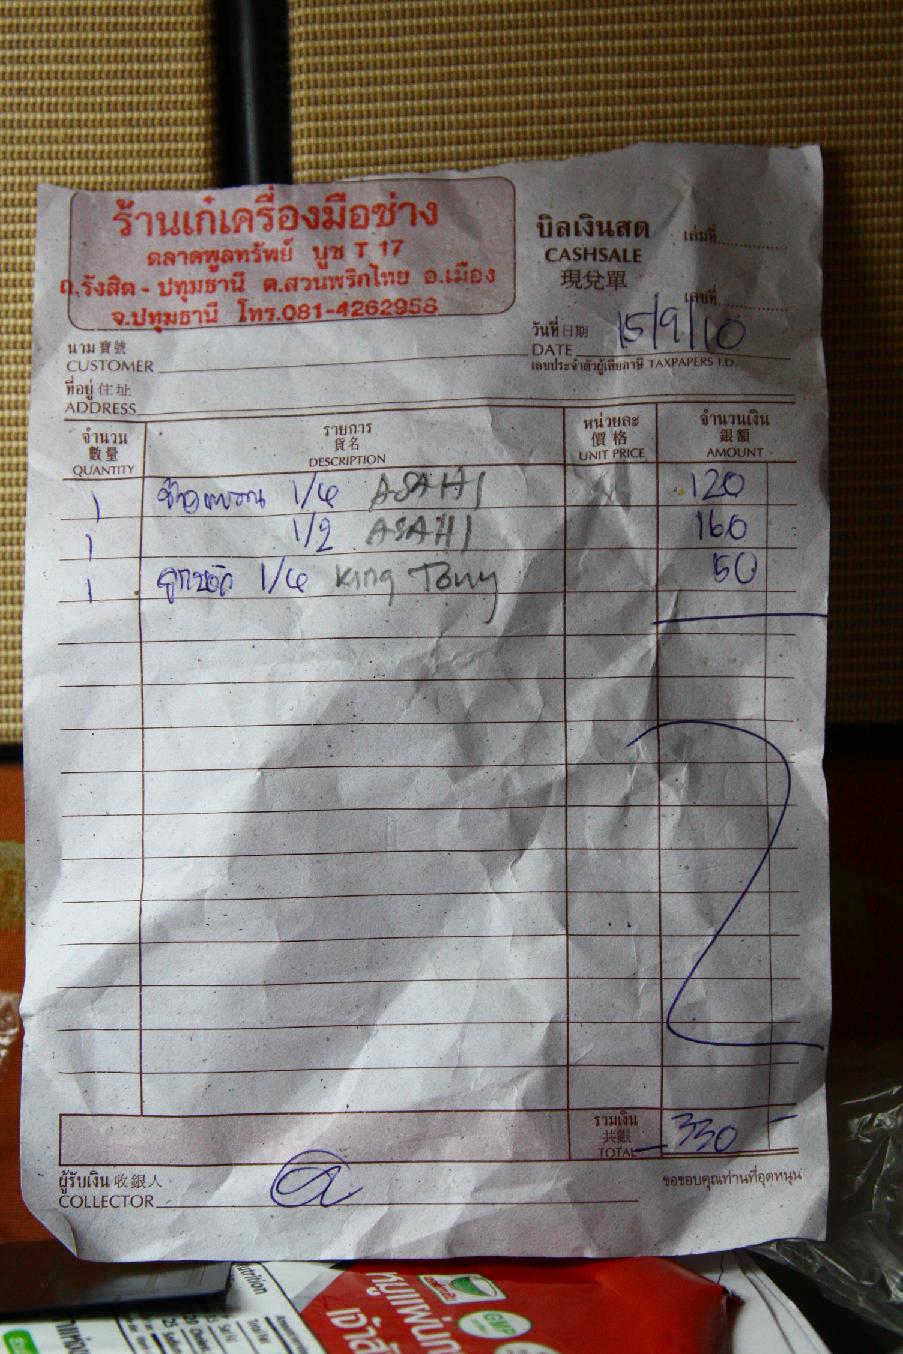 ร้านเก๋เครื่องมือช่าง
ตลาดพูลทรัพย์ บูช T 17
ถ.รังสิต - ปทุมธานี ต.สวนพริกไทย อ.เมือง
จ.ปทุมธานี โทร.081-4262958
บิลเงินสด
CASHSALE
現兌單
เล่มที่
เลขที่
วันที่ 日期 15/9/10
DATE
เลขประจำตัวผู้เสียภาษี TAXPAPERS I.D.
นาม 寶號
CUSTOMER
ที่อยู่ 住址
ADDRESS
จำนวน รายการ หน่วยละ จำนวนเงิน
數量 貨名 價格 銀額
QUANTITY DESCRIPTION UNIT PRICE AMOUNT
1 1/4 ASAHI 120
1 1/2 ASAHI 160
1 1/4 King Tony 50
รวมเงิน
共銀
TOTAL 330 -
ผู้รับเงิน 收銀人
COLLECTOR
ขอขอบคุณท่านที่อุดหนุน
GMP